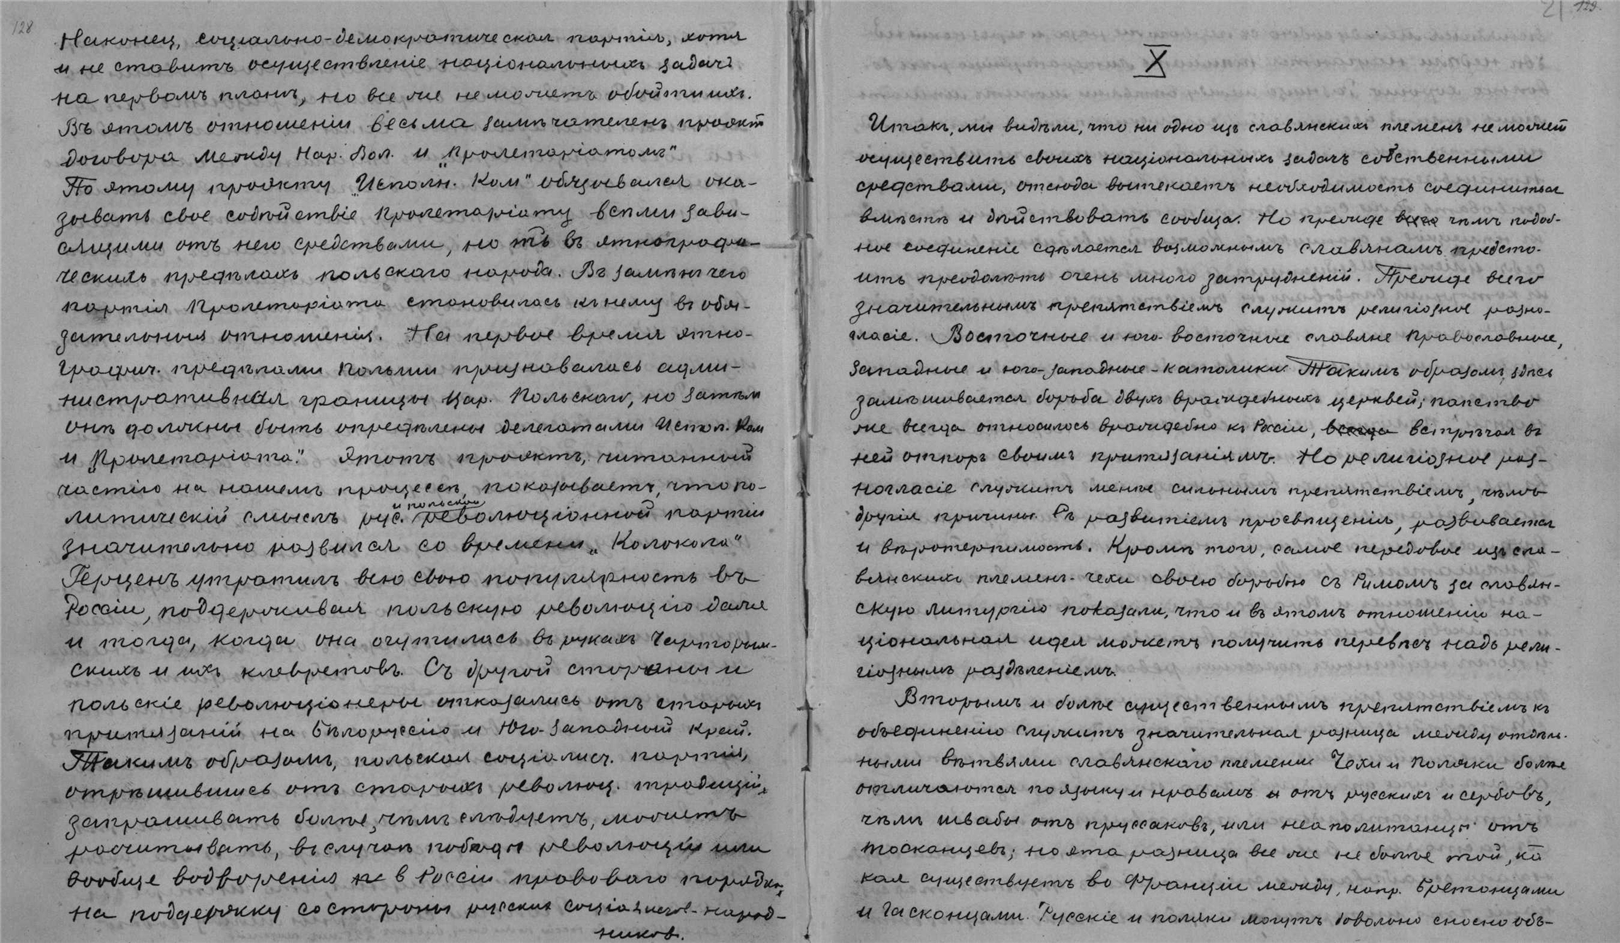 128
Наконец, соціально-демократическая партія, хотя
и не ставитъ осуществленіе національныхъ задачъ
на первомъ планѣ, но все же не можетъ обойти ихъ.
Въ этомъ отношеніи весьма замѣчателенъ проэктъ
договора между Нар. Вол. и „Пролетаріатомъ"
По этому проэкту „Исполн. Ком" обязывался ока-
зывать свое содѣйствіе Пролетаріату всѣми зави-
сящими отъ него средствами, но въ этнографи-
ческихъ предѣлахъ польскаго народа. Взамѣнъ чего
партія Пролетаріата становилась къ нему въ обя-
зательныя отношенія. На первое время этно-
графич. предѣлами Польши признавалась адми-
нистративная границы Цар. Польскаго, но затѣмъ
онѣ должны быть опредѣлены делегатами Испол. Ком
и „Пролетаріата." Этотъ проэктъ, читанный
частію на нашемъ процессѣ, показываетъ, что по-
и польской
литическій смыслъ рус. революціонной партіи
значительно развился со времени „Колокола"
Герценъ утратилъ всю свою популярность въ
Россіи, поддерживая польскую революцію даже
и тогда, когда она очутилась въ рукахъ Чарторый-
скихъ и ихъ клевретовъ. Съ другой стороны и
польскіе революціонеры отказались отъ старыхъ
притязаній на Бѣлоруссію и Юго-Западный Край.
Такимъ образомъ, польская соціалист. партія,
отрѣшившись отъ старыхъ революц. традицій,
запрашивать болѣе, чѣмъ слѣдуетъ, можетъ
расчитывать, въ случаѣ побѣды революціи или
вообще водворенія въ Россіи правового порядка,
на поддержку со стороны русскихъ соціалистов-народ-
ников.
129.
X
Итакъ, мы видѣли, что ни одно изъ славянскихъ племенъ не можетъ
осуществить своихъ національныхъ задачъ собственными
средствами, отсюда вытекаетъ необходимость соединиться
вмѣстѣ и дѣйствовать сообща. Но прежде чѣмъ подоб-
ное соединеніе сдѣлается возможнымъ славянамъ предсто-
итъ преодолѣть очень много затрудненій. Прежде всего
значительнымъ препятствіемъ служитъ религіозное разно-
гласіе. Восточные и юго-восточные славяне Православные,
западные и юго-западные-католики. Такимъ образомъ, здѣсь
замѣшивается борьба двухъ враждебныхъ церквей; папство
же всегда относилось враждебно къ Россіи, встрѣчая въ
ней отпоръ своимъ притязаніямъ. Но религіозное раз-
ногласіе служитъ менѣе сильнымъ препятствіемъ, чѣмъ
другія причины. Съ развитіемъ просвѣщенія, развивается
и вѣротерпимость. Кромѣ того, самое передовое изъ сла-
вянскихъ племенъ-чехи своею борьбою съ Римомъ за славян-
скую литургію показали, что и въ этомъ отношеніи на-
ціональная идея можетъ получить перевѣсъ надъ рели-
гіознымъ раздѣленіемъ.
Вторымъ и болѣе существеннымъ препятствіемъ къ
объединенію служитъ значительная разница между отдѣль-
ными вѣтвями славянскаго племени. Чехи и Поляки болѣе
отличаются по языку и нравамъ и отъ русскихъ и сербовъ,
чѣмъ швабы отъ пруссаковъ, или неаполитанцы отъ
тосканцевъ; но эта разница все же не болѣе той, ка
кая существуетъ во Франціи между, напр. Бретонцами
и Гасконцами. Русскіе и поляки могутъ довольно сносно объ-